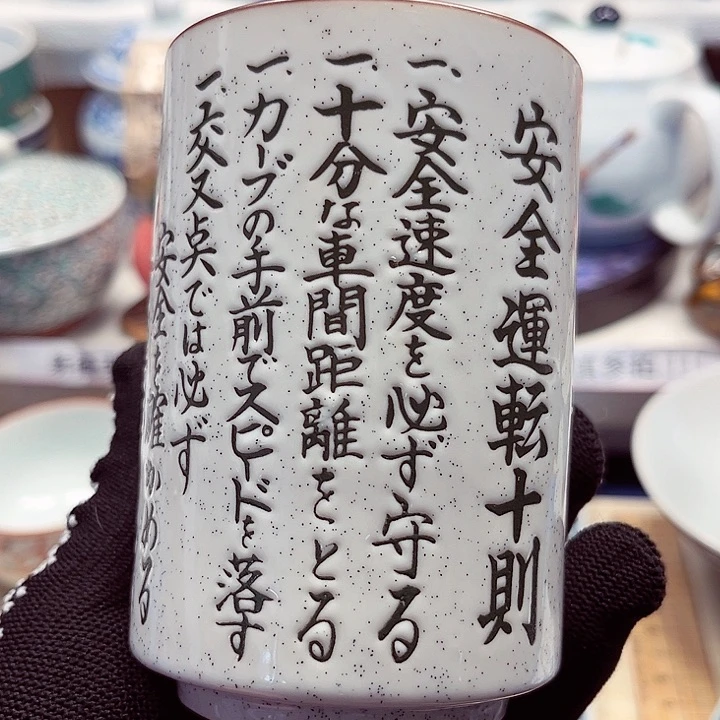 安全運転十則
一、安全速度を必ず守る
一、十分な車間距離をとる
一、カーブの手前でスピードを落す
一、交又点では必ず
安全を確かめる